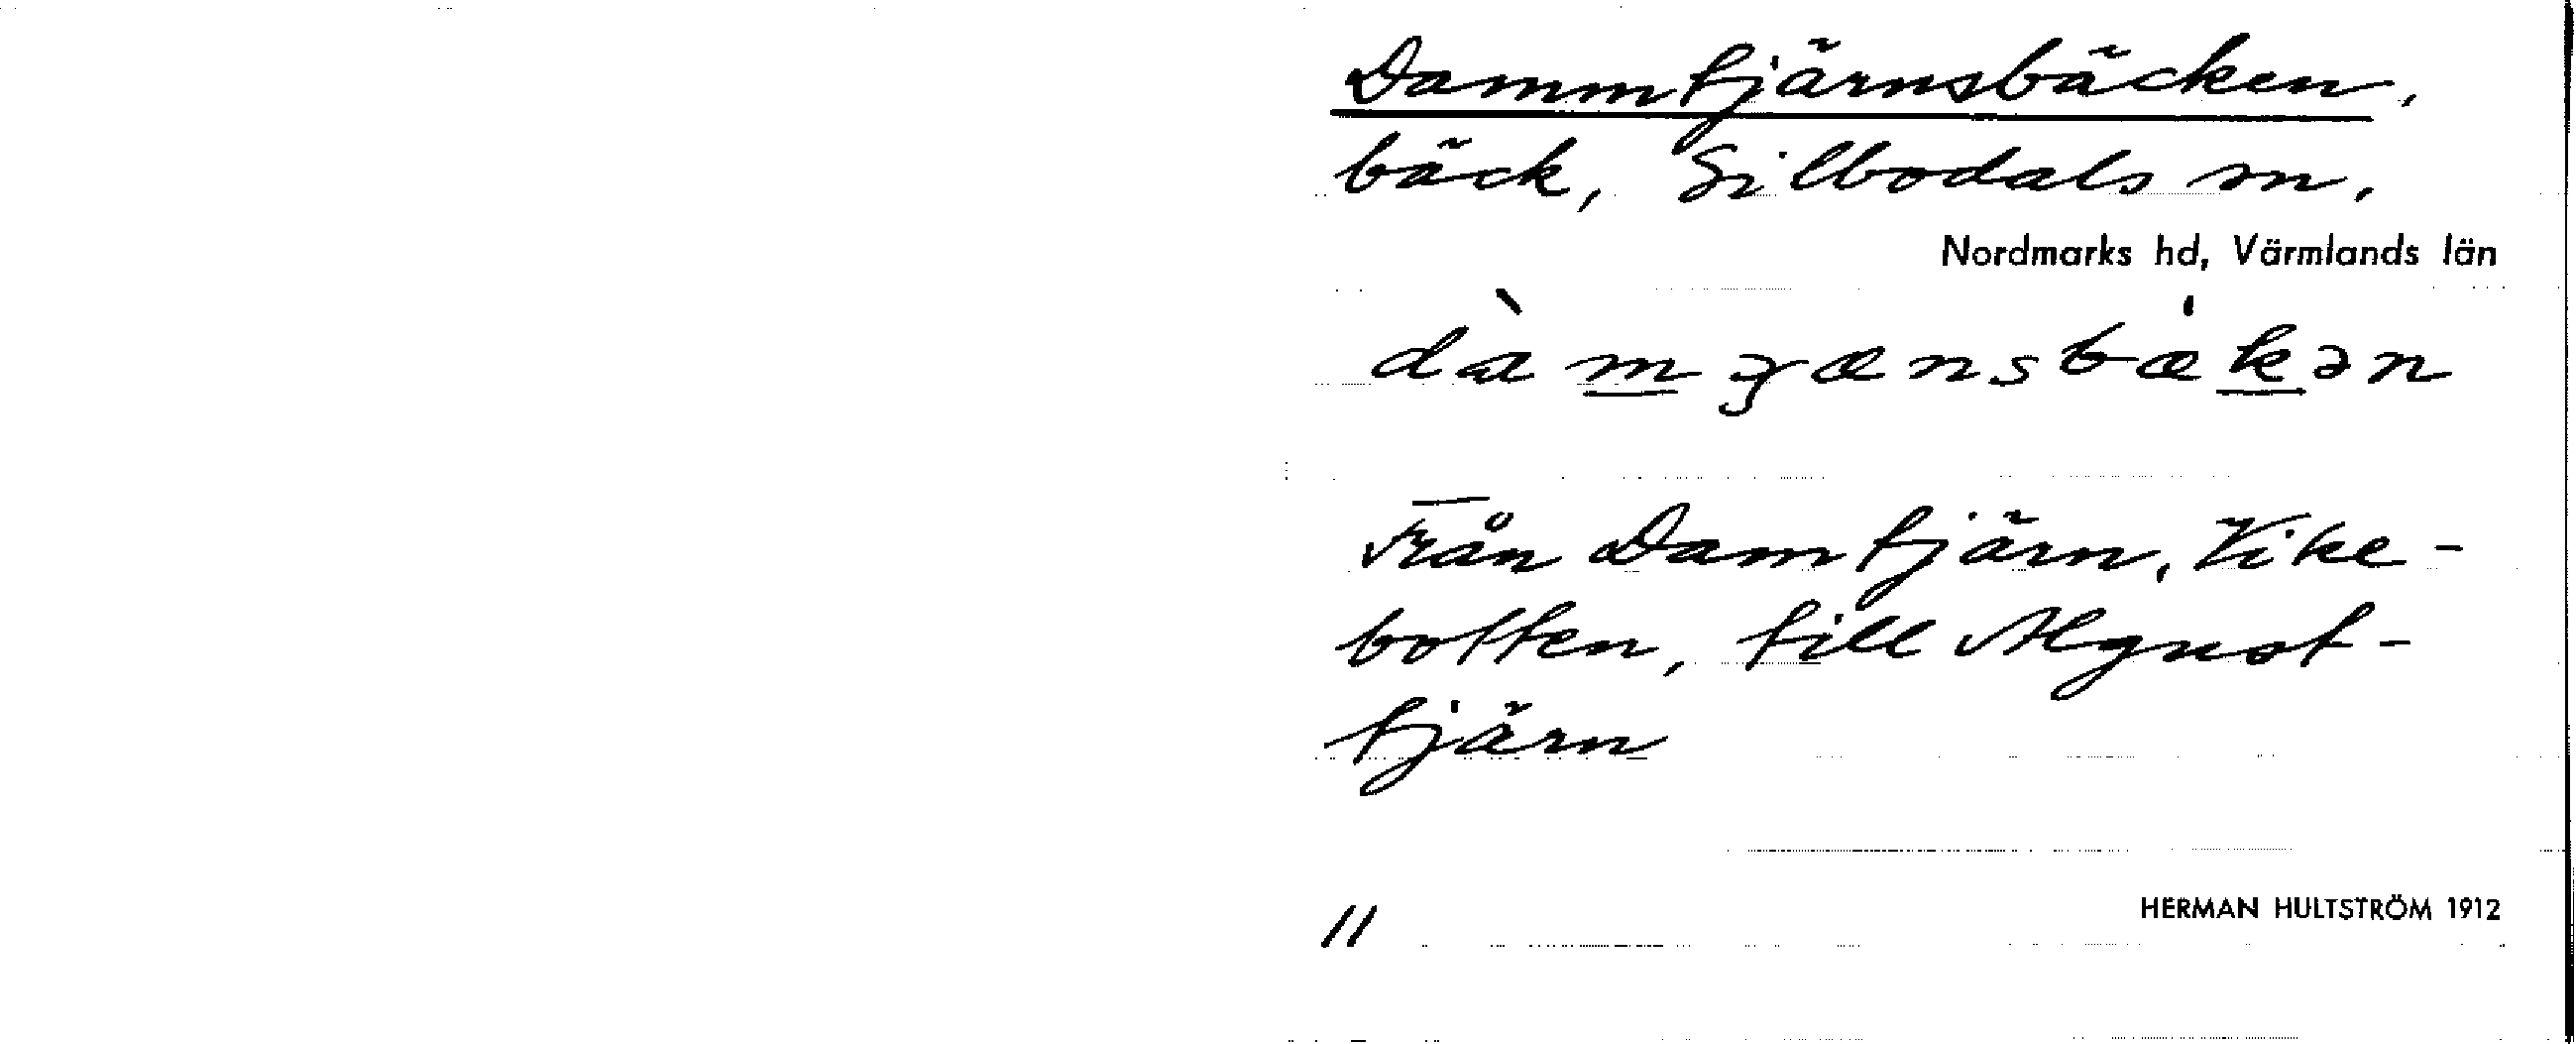 Dammtjärnsbäcken,
bäck, Silbodals sn,
Nordmarks hd, Värmlands län
Från Damtjärn, Vike-
botten, till Algust-
tjärn
HERMAN HULTSTRÖM 1912
11